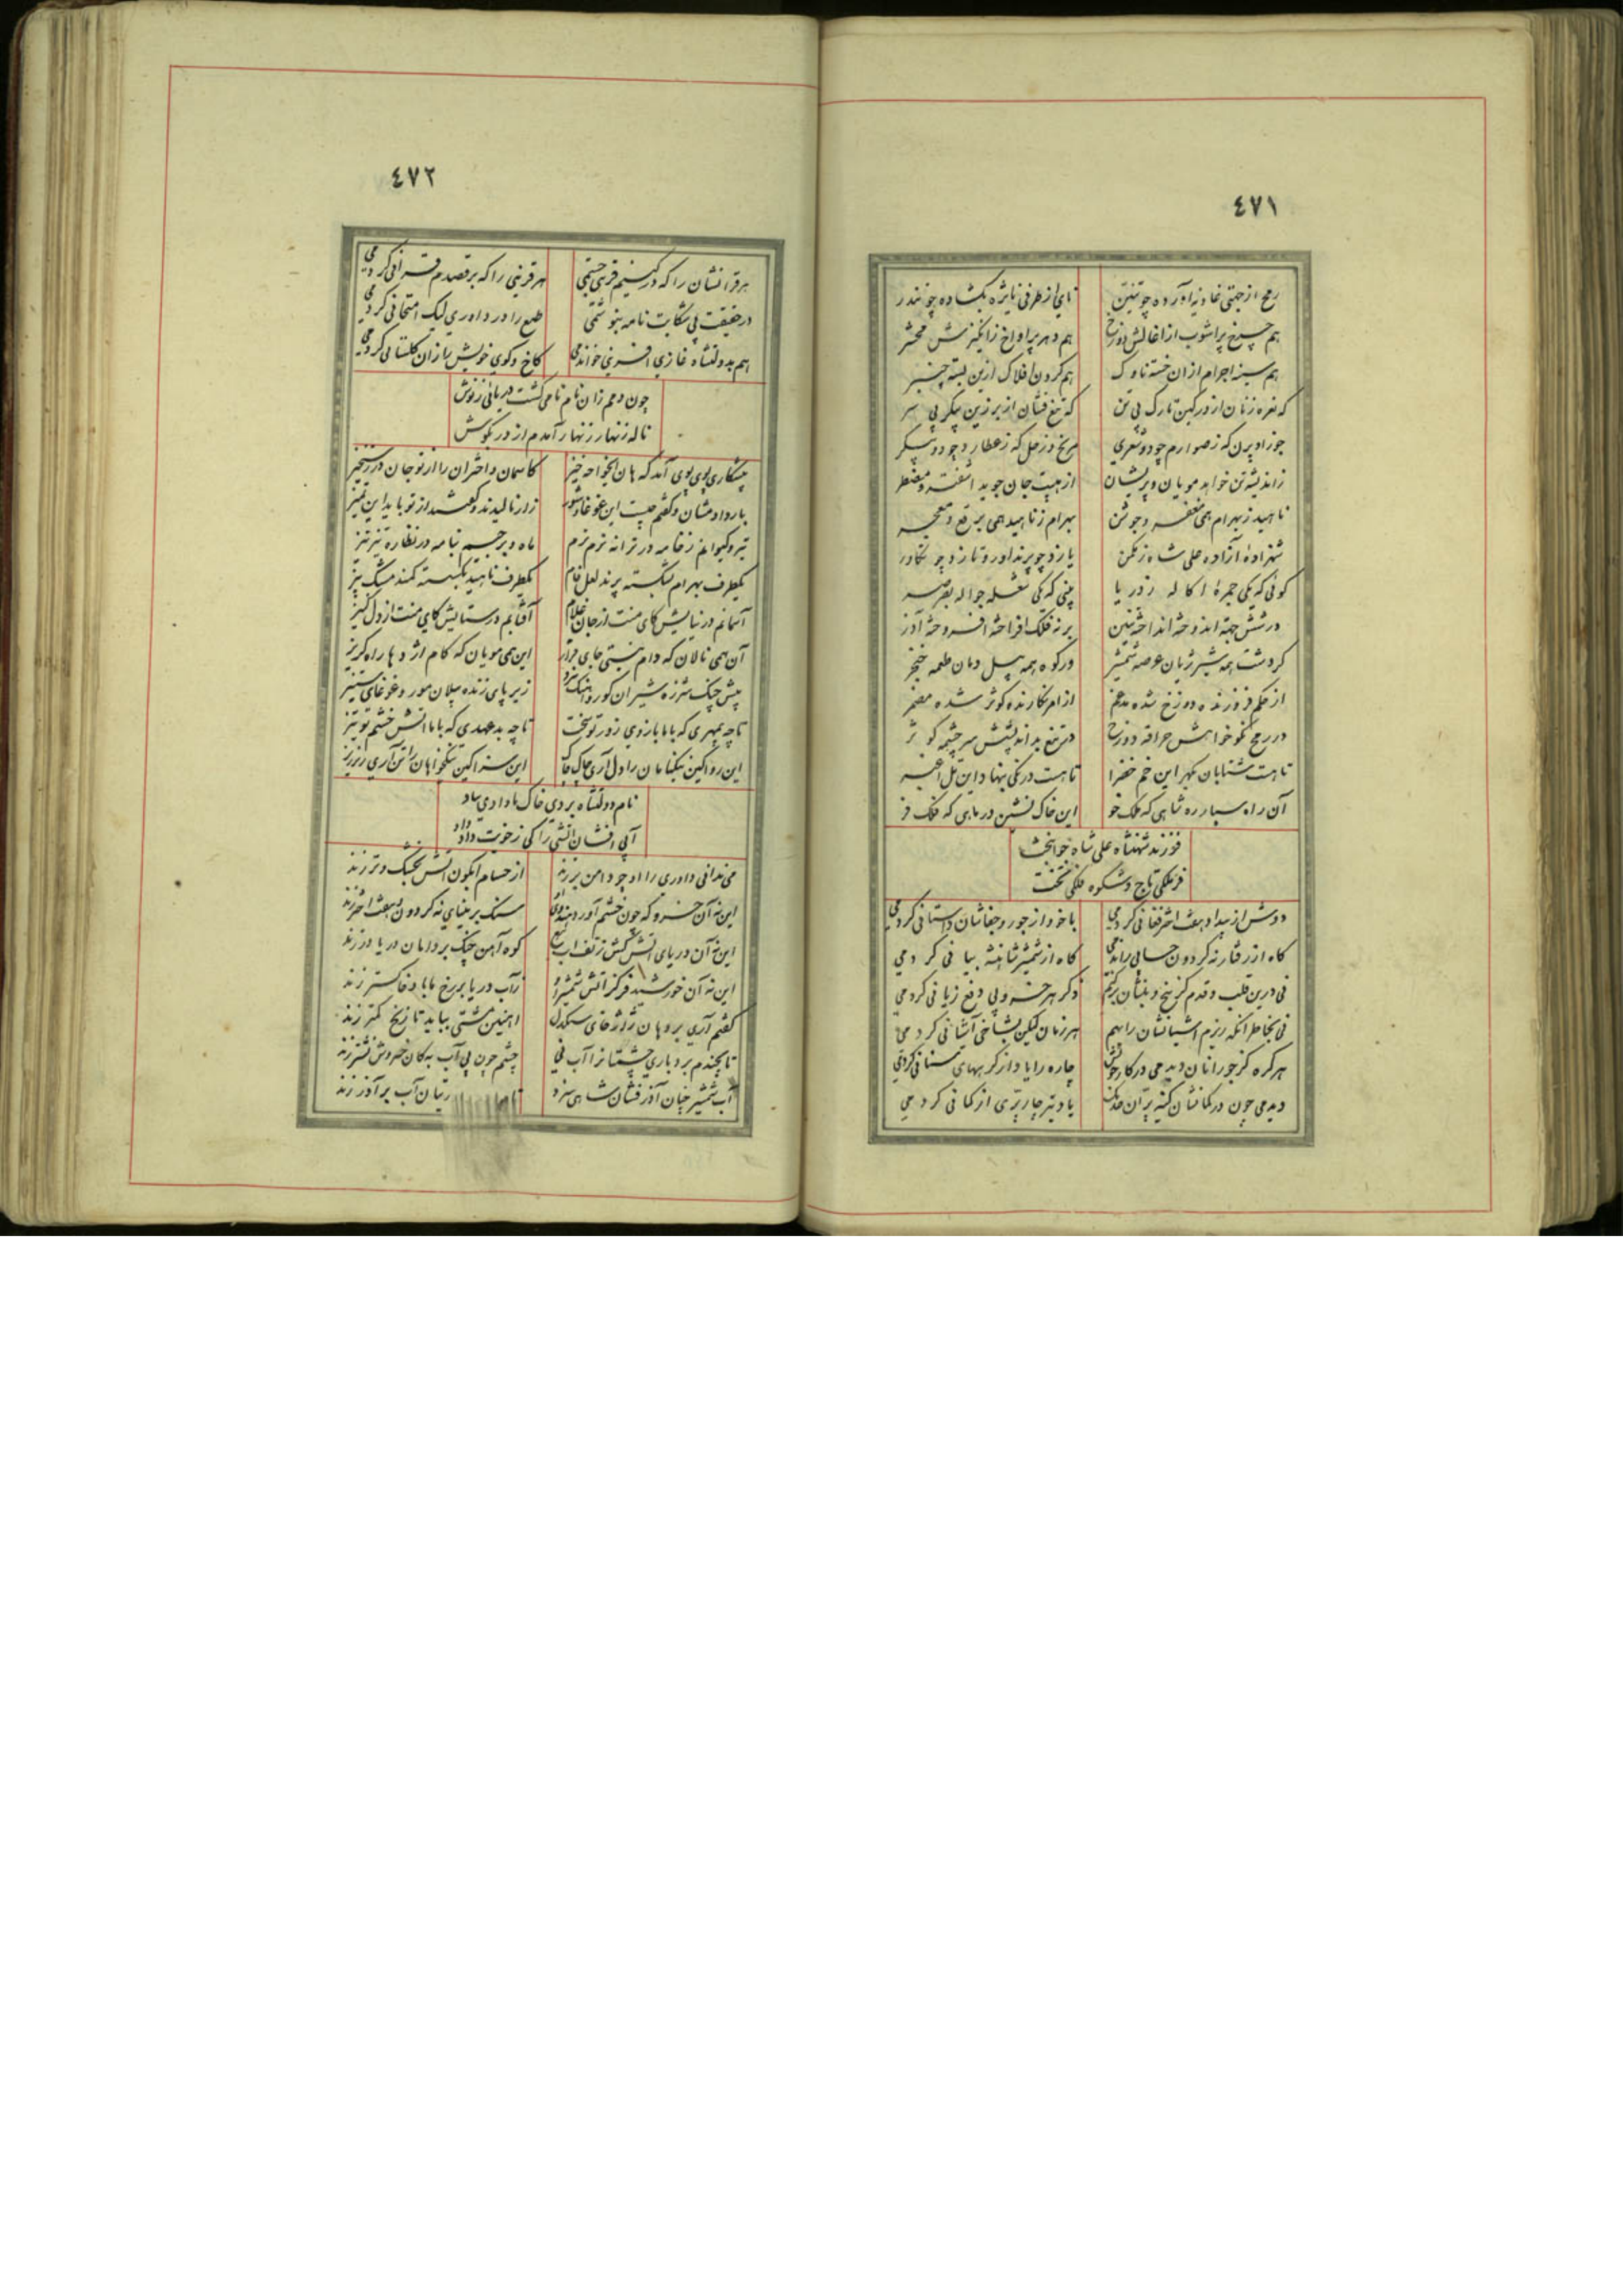 ٤٧١
رمح از جهتی غاو نیه آورده چو تنین نای از طرفی نایژه بگشاده چو تندر
هم چرخ پراشوب از اغالش دوزخ هم دهر پراوراخ ز انگیزش محشر
هم سینه اجرام ازان خسته ناوک هم گردن افلاک ازین بسته چنبر
که نعره زنان از در کین تارک بی تن که تیغ فشان از بر زین پیکر بی سر
جوزا و پرن که ز صوارم چو دو شعری مریخ و زحل که ز عطارد چو دو پیکر
زاندیشه تن خواهد مویان و پریشان از هیبت جان جوید آشفته و مضطر
ناهید ز بهرام همی مغفر و جوشن بهرام ز ناهید همی برقع و معجر
شهزاده آزاده علی شاه ز مکمن یازد چو پرنداور و تازد چو تکاور
گوئی که یکی جمره اکاله ز دریا بینی که یکی شعله جواله بصرصر
در شش جهة اندوخته انداخته تنین بر نه فلک افراخته افروخته آذر
گردشت همه شیر ژیان عرصه شمشیر ور کوه همه پیل دمان طعمه خنجر
از حکم فروزنده دوزخ شده مدغم از امر نگارنده کوثر شده مضمر
در رمح نکو خواهش حراقه دوزخ در تیغ بداندیشش سرچشمه کوثر
تا هست شتابان بکهر این خم خضرا تا هست درنگی بنهاد این تل اغبر
آن راه سپار ره شاهی که ملک خو این خاک نشین در ماهی که فلک فر
فرزند شهنشاه علی شاه جوانبخت
فر ملکی تاج و شکوه فلکی تخت
دوش از بیداد هفت اختر فغانی کردمی با خود از جور و جفاشان داستانی کردمی
گاه از رفتار نه گردون حسابی راندمی گاه از شمشیر شاهنشه بیانی کردمی
نی درین قلب و قدم کز بیخ و بنشان برکنم ذکر هر خسرو پی دفع زیانی کردمی
نی بخاطر انکه ریزم آشیانشان را بهم هر زمان لیکن بشاخی آشیانی کردمی
هر گره کز جور انان دیدمی در کار خویش چاره را یاد از گرههای سنانی کردمی
دیدمی چون در کمانشان کینه پران خدنگ یاد تیر چارپری از کمانی کردمی
٤٧٢
هر قرانشان را که در کینم قرین جستمی هر قرینی را که بر قصدم قرانی کردمی
در حقیقت پی شکایت نامه بنوشتمی طبع را در داوری لیک امتحانی کردمی
هم بدولتشاه غازی افرینی خواندمی کاخ و کوی خویش را زان گلستانی کردمی
چون دمم زان نام نامی گشت دریائی ز نوش
ناله زنهار زنهار آمدم از در بگوش
پیشکاری پوی پوی آمد که هان ایخواجه خیز کاسمان و اختران را از تو جان در رستخیز
بار دادمشان و گفتم چیست این غوغا و شور زار نالیدند و گفتند از تو باید این تمیز
تیر و کیوانم ز خامه در ترانه نرم نرم ماه و برجیسم بنامه در نظاره تیز تیز
یکطرف بهرام بشکسته پرند لعل فام یکطرف ناهید بگسسته کمند مشک بیز
آسمانم در نیایش کای منت از جان غلام آفتابم در ستایش کای منت از دل کنیز
آن همی نالان که دام نیستی جای قرار این همی مویان که کام اژدها راه گریز
پیش چنگ شرزه شیران گور و اهنگ نبرد زیر پای زنده پیلان مور و غوغای ستیز
تا چه بیمهری که با ما بازوی زور تو سخت تا چه بد عهدی که با ما آتش خشم تو تیز
این روا کین بیگناهان را دل آری چاک چاک این سزا کین نیکخواهان را تن آری ریز ریز
نام دولتشاه بردی خاک ما دادی بباد
آبی افشان آتشی را کی ز خویت داد داد
می ندانی داوری را او چو دامن بر زند از حسام آبگون آتش بخشک و تر زند
این نه آن خسرو که چون خشم آورد هندوی او سنگ بر مینای نه گردون و هفت اختر زند
این نه آن دریای آتش کش ز تف آب تیغ کوه آهن چنگ بر دامان دریا در زند
این نه آن خورشید فر کز آتش شمشیر او زآب دریا بر رخ ما باد خاکستر زند
گفتم آری بر دهان ژاژخای سنگدل اینچنین مشتی بباید تا زنخ کمتر زند
تا بچندم بردباری چشمتانرا آب نی چشم چون بی آب به کان خسروش نشتر زند
آب شمشیر چنان آذر فشان شاهی سزد تا رتیان آب بر آذر زند